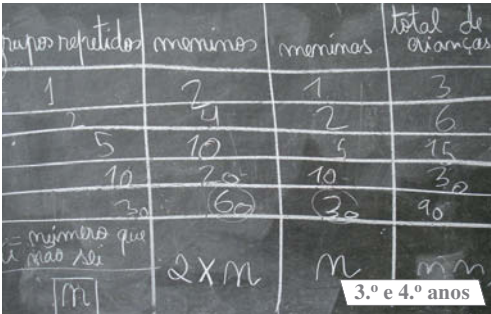 grupos repetidos meninos meninas total de crianças
1 2 1 3
2 4 2 6
5 10 5 15
10 20 10 30
30 60 30 90
= número que
não sei
n 2 x n n
3.º e 4.º anos